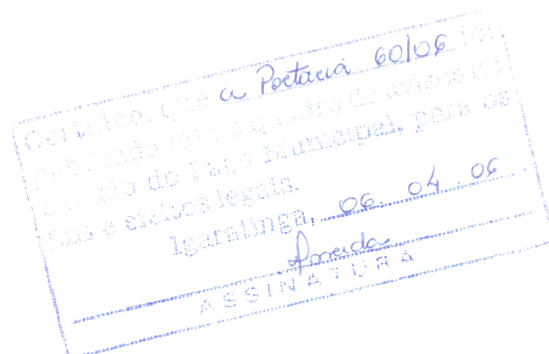 Certifico, que a Portaria 60/06 foi
publicada no quadro de avisos do
Saguão do Paço Municipal, para os
fins e efeitos legais.
Igaratinga, 06. 04. 06
Almeida
ASSINATURA